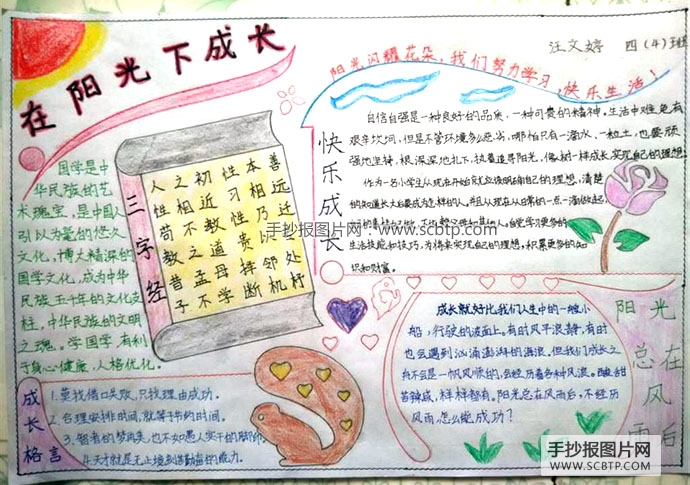 在阳光下成长
汪文婷 四(4)班
阳光闪耀花朵,我们努力学习,快乐生活!
国学是中
华民族的艺
术瑰宝,是中国人
引以为毫的悠久
文化,博大精深的
国学文化,成为中华
民族五千年的文化支
柱,中华民族的文明
之魂。学国学有利
于身心健康,人格优化。
三字经
人之初 性本善
性相近 习相远
苟不教 性乃迁
教之道 贵以
昔孟母 择邻处
子不学 断机杼
快乐成长
自信自强是一种良好的品采,一种可贵的精神。生活中难免有
艰辛坎坷,但是不管环境多么恶劣,哪怕只有一滴水,一粒土,也要顽
强地坚持,根深深地扎下,执着追寻阳光,像树一样成长,实现自己的理想。
作为一名小学生从现在开始就应该明确自己的理想,清楚
的知道长大后要成为怎样的人,并从现在从点滴的一点一滴做起,
自觉学习更多的
生活技能和技巧,为将来实现自己的理想,积累更多的知
识和财富。
手抄报图片网 - www.scbtp.com
成长就好比我们人生中的一艘小
船,行驶的波面上,有时风平浪静,有时
也会遇到汹涌澎湃的海浪。但我们成长之
舟不会是一帆风顺的,会经历着各种风浪。酸甜
苦辣咸,样样都有。阳光总在风雨后,不经历
风雨怎么能成功?
阳光总在风雨后
成长格言
1.莫找借口失败,只找理由成功。
2.合理安排时间,就等于节约时间。
3.智者的梦再美,也不如愚人实干的脚印。
4.天才就是无止境刻苦勤奋的能力。
手抄报图片网
WWW.SCBTP.COM